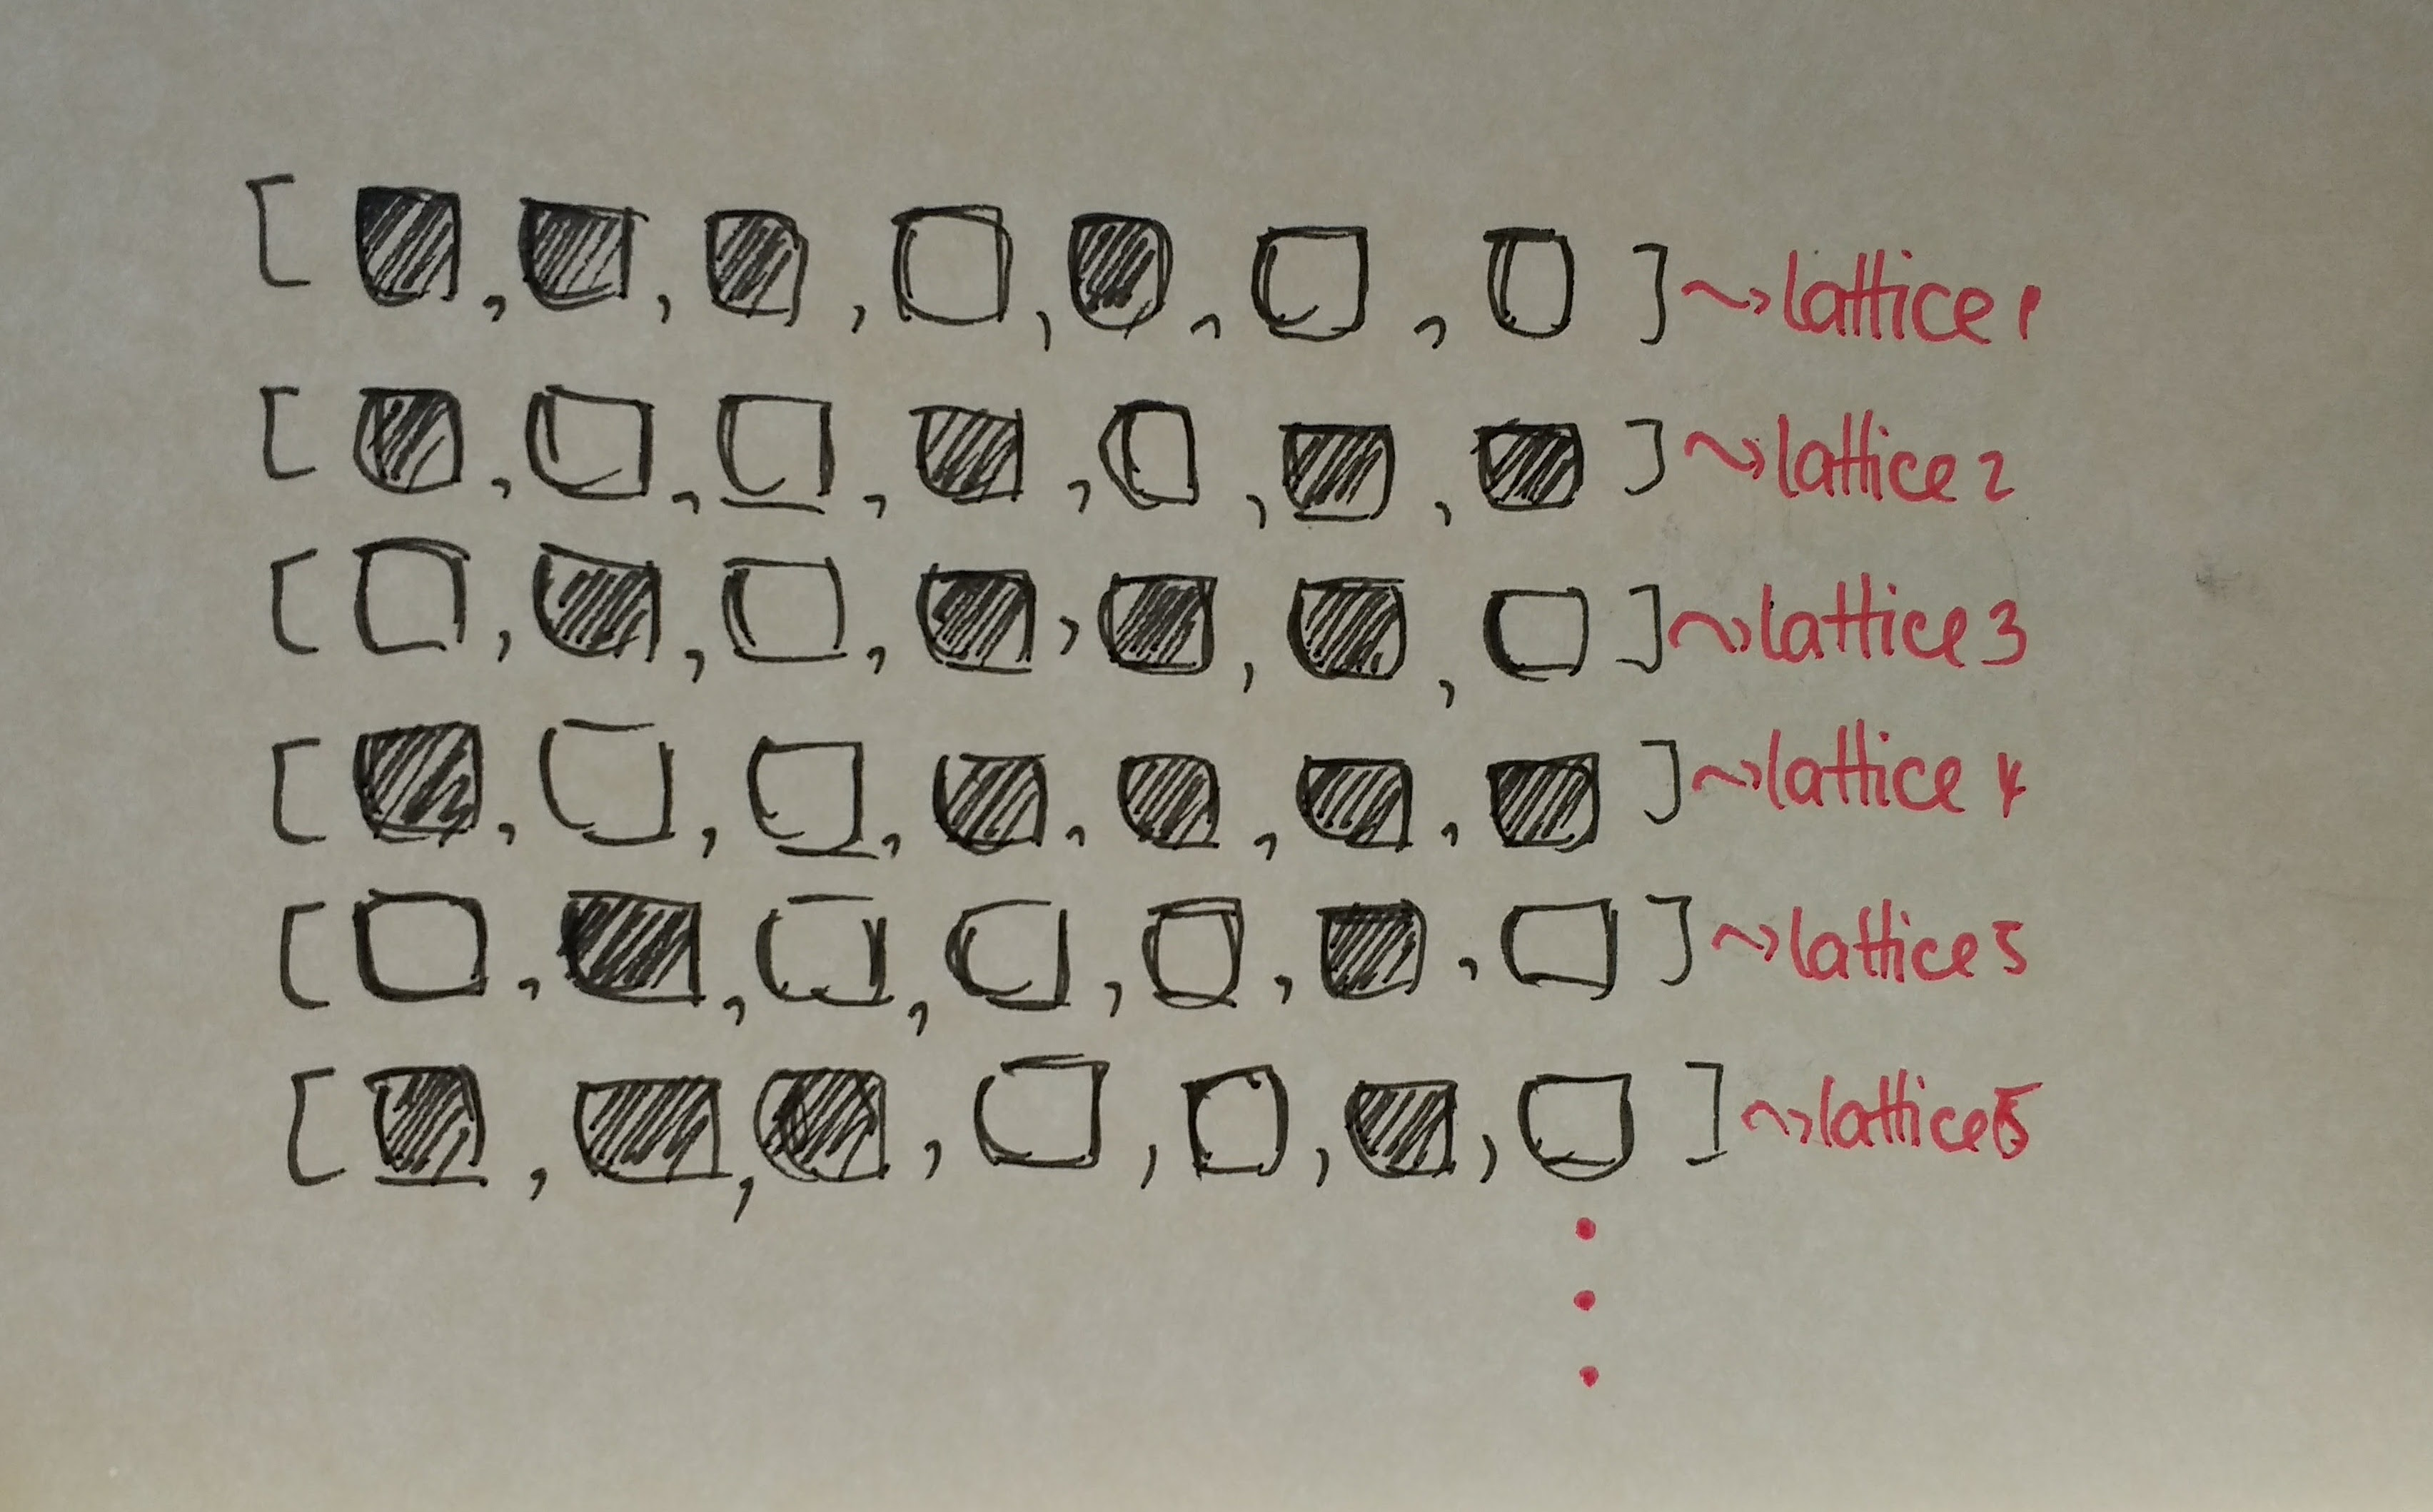 [■, ■, ■, □, ■, □, □] ~> lattice 1
[■, □, □, ■, □, ■, ■] ~> lattice 2
[□, ■, □, ■, ■, ■, □] ~> lattice 3
[■, □, □, ■, ■, ■, ■] ~> lattice 4
[□, ■, □, □, □, ■, □] ~> lattice 5
[■, ■, ■, □, □, ■, □] ~> lattice